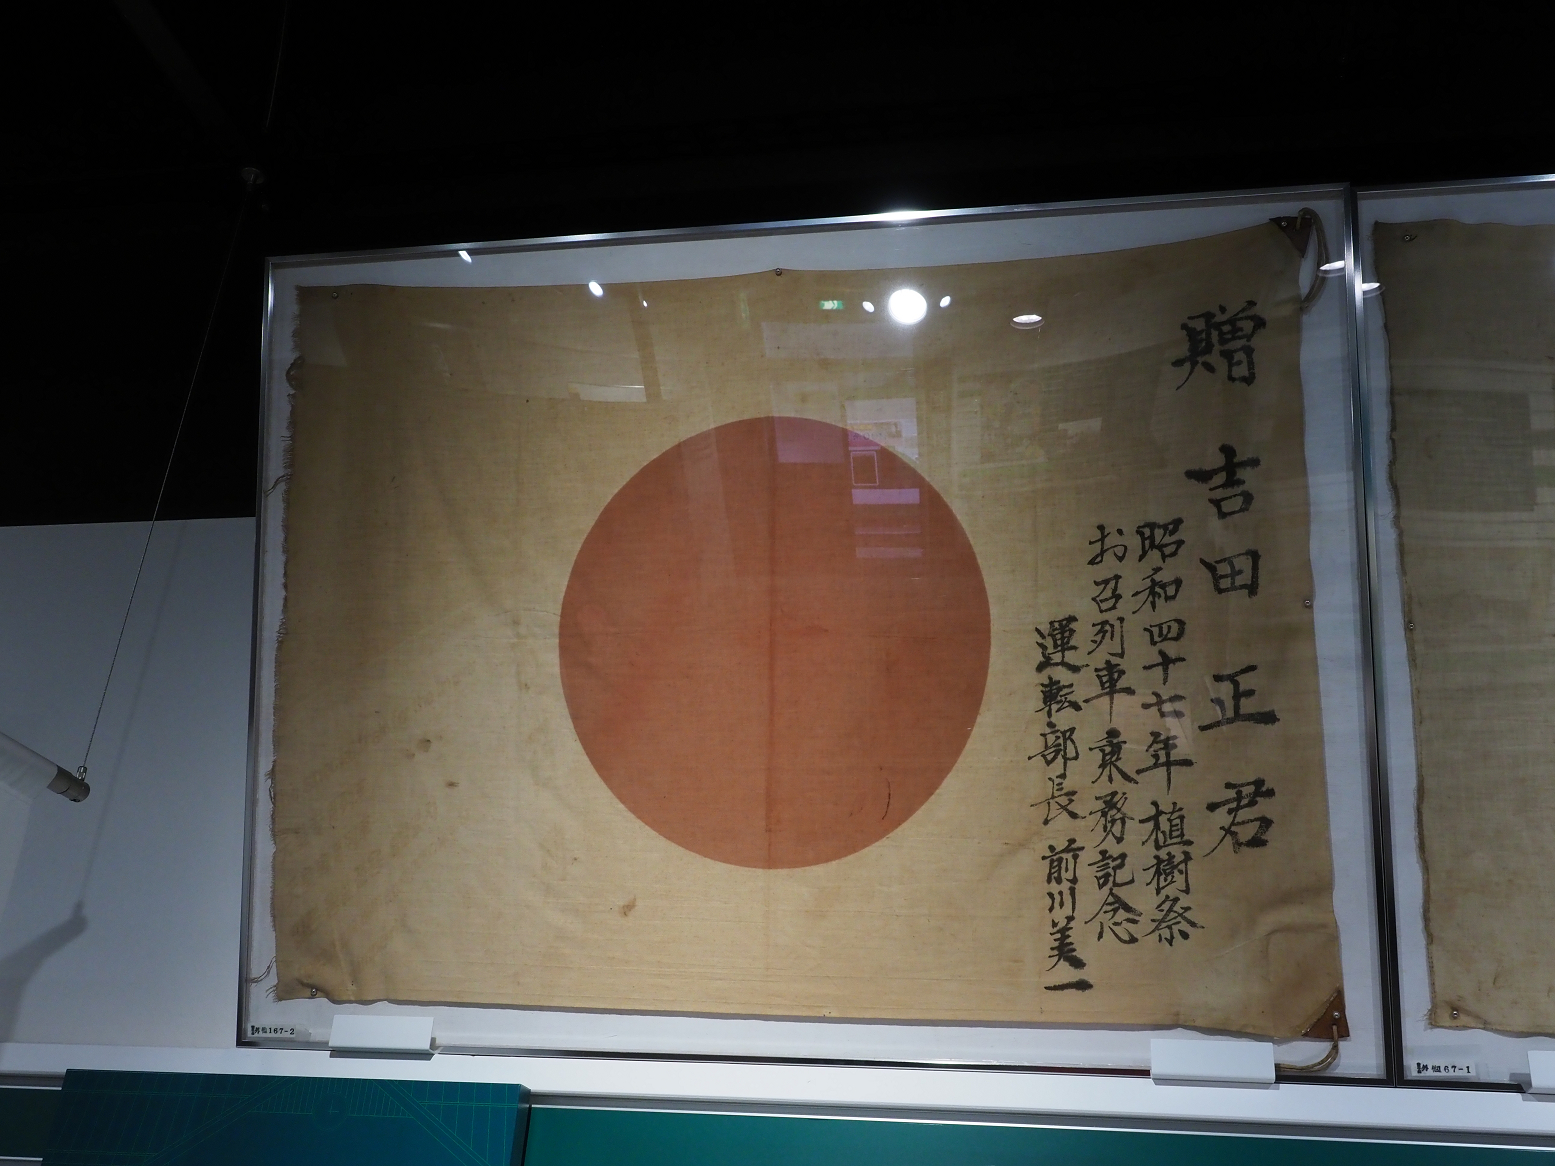 贈 吉田正君
昭和四十七年植樹祭
お召列車乗務記念
運転部長 前川美一
167-2
67-1